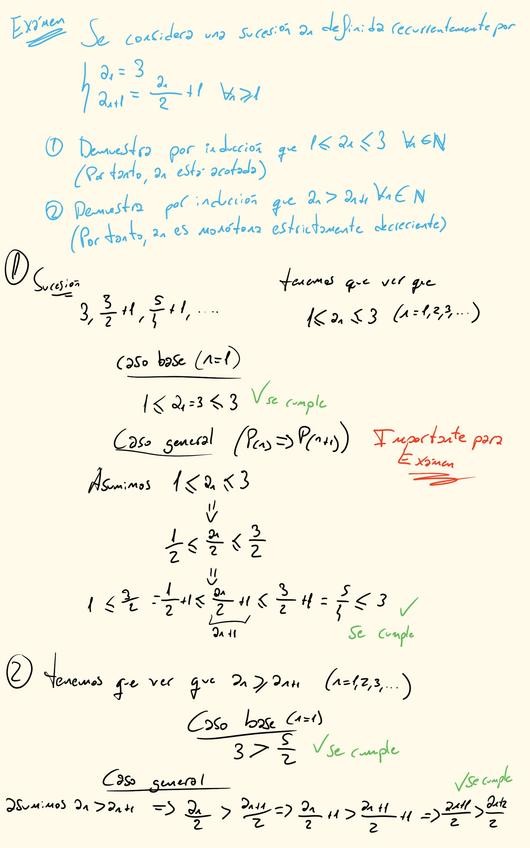 Exámen Se considera una sucesión an definida recurrentemente por
a1 = 3
an+1 = an/2 +1 ∀n≥1
① Demuestra por inducción que 1≤an≤3 ∀n∈N
(Por tanto, an está acotada)
② Demuestra por inducción que an>an+1 ∀n∈N
(Por tanto, an es monótona estrictamente decreciente)
① Sucesión tenemos que ver que
3, 3/2 +1, 5/4 +1, .... 1≤an≤3 (n=1,2,3,...)
Caso base (n=1)
1≤a1=3≤3 ✓se cumple
Caso general (P(n)=>P(n+1)) Importante para
Exámen
Asumimos 1≤an≤3
⇓
1/2 ≤ an/2 ≤ 3/2
⇓
1 ≤ 3/2 = 1/2 +1 ≤ an/2 +1 ≤ 3/2 +1 = 5/ ≤ 3 ✓
an+1 Se cumple
② tenemos que ver que an≥an+1 (n=1,2,3,...)
Caso base (n=1)
3 > 5/2 ✓se cumple
Caso general ✓se cumple
asumimos an>an+1 => an/2 > an+1/2 => an/2 +1 > an+1/2 +1 => an+1/2 > an+2/2